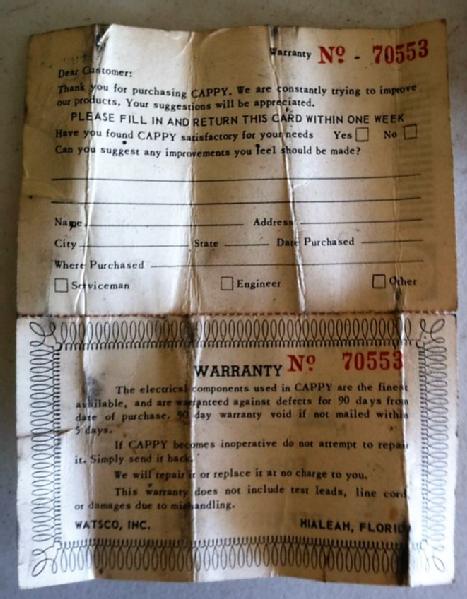 Warranty Nº - 70553
Dear Customer:
Thank you for purchasing CAPPY. We are constantly trying to improve
our products. Your suggestions will be appreciated.
PLEASE FILL IN AND RETURN THIS CARD WITHIN ONE WEEK
Have you found CAPPY satisfactory for your needs Yes No
Can you suggest any improvements you feel should be made?
Name Address
City State Date Purchased
Where Purchased
Serviceman Engineer Other
WARRANTY Nº 70553
The electrical components used in CAPPY are the finest
available, and are warranteed against defects for 90 days from
date of purchase. 90 day warranty void if not mailed within
5 days.
If CAPPY becomes inoperative do not attempt to repair
it. Simply send it back.
We will repair it or replace it at no charge to you.
This warranty does not include test leads, line cord,
or damages due to mishandling.
WATSCO, INC. HIALEAH, FLORIDA